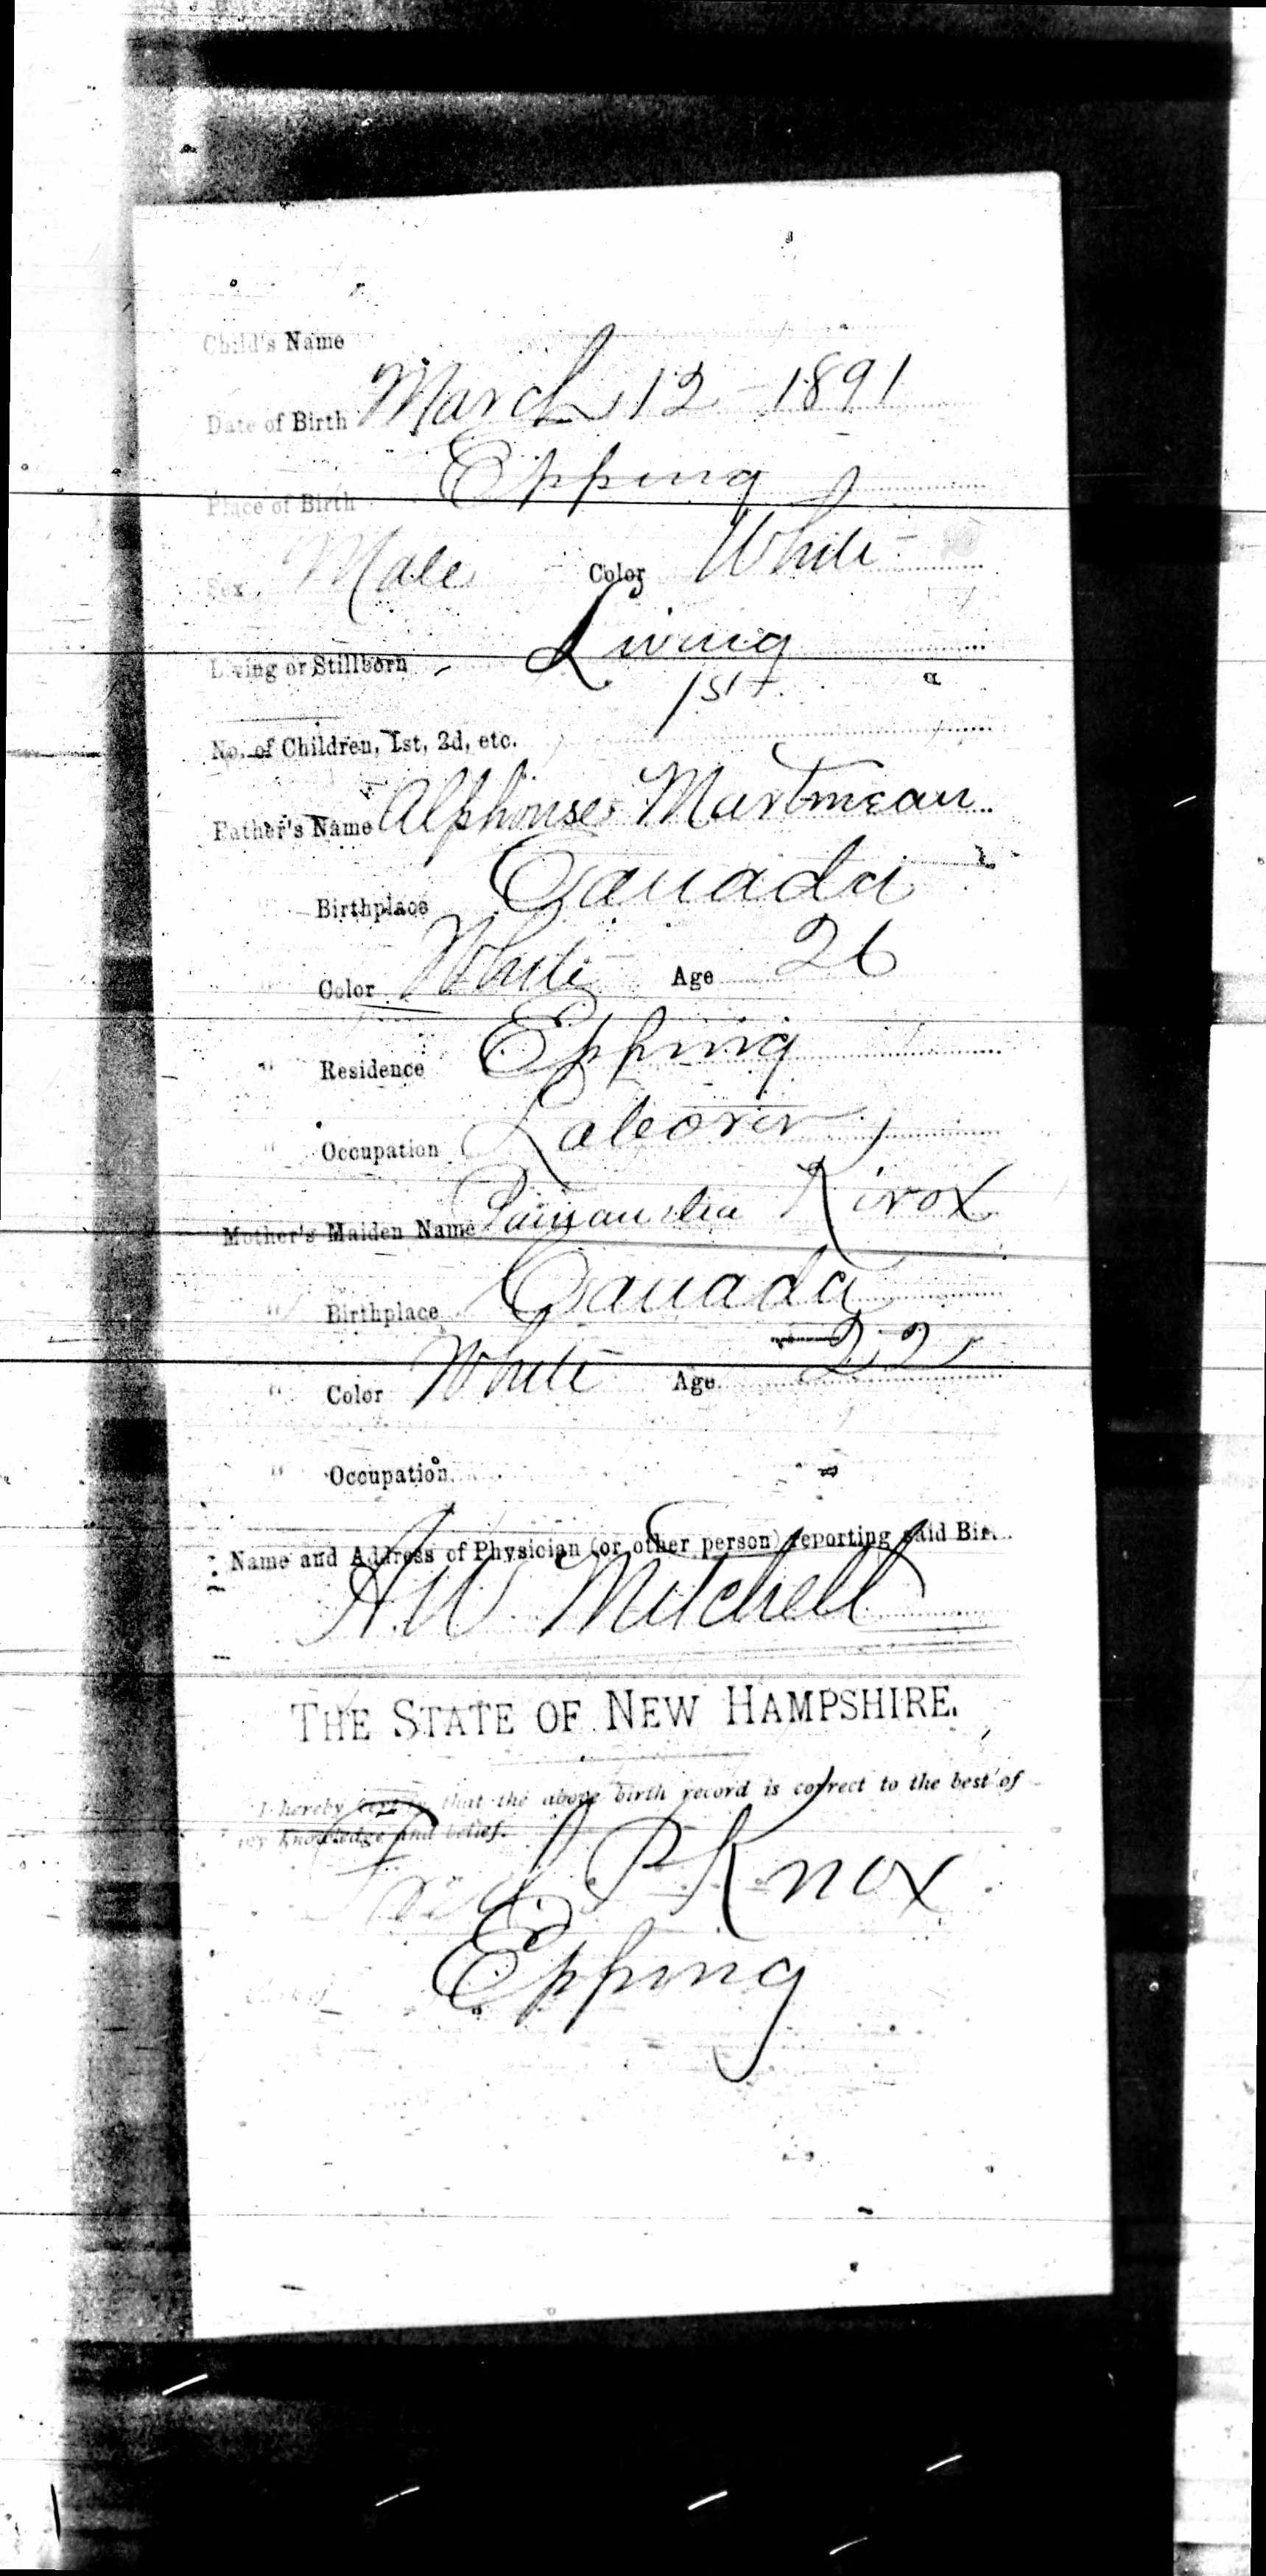 Child's Name
Date of Birth March 12 - 1891
Place of Birth Epping
Sex. Male Color White
Living or Stillborn - Living
No. of Children, 1st, 2d, etc. 1st
Father's Name Alphonse Martineau
" Birthplace Canada
" Color White Age 26
" Residence Epping
" Occupation Laborer
Mother's Maiden Name Kirox
" Birthplace Canada
" Color White Age 22
" Occupation
Name and Address of Physician (or other person) reporting said Bir...
A.W. Mitchell
THE STATE OF NEW HAMPSHIRE.
I hereby certify that the above birth record is correct to the best of
my knowledge and belief.
Fred P Knox
Clerk of Epping